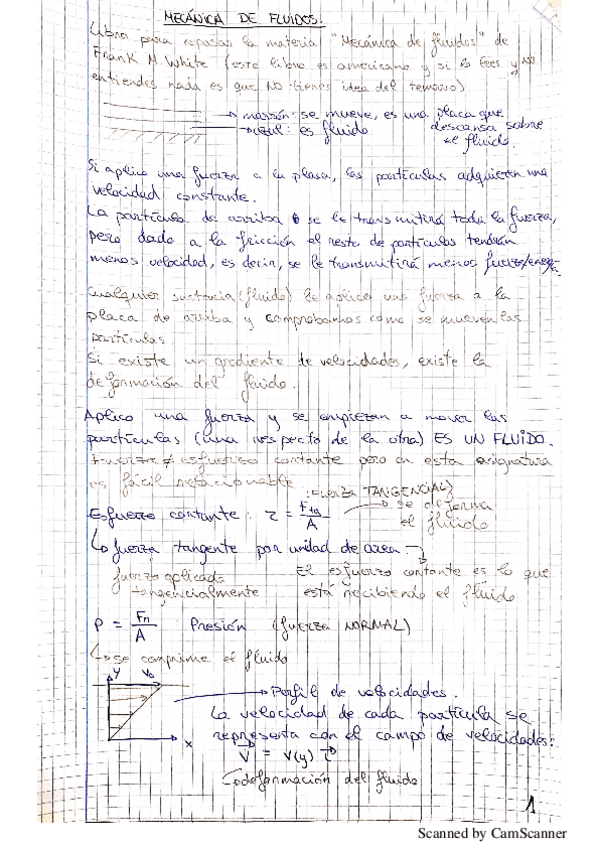 MECÁNICA DE FLUIDOS:
Libro para repasar la materia "Mecánica de fluidos" de
Frank M. White (este libro es americano y si lo lees y NO
entiendes nada es que NO tienes idea del temario)
→ marrón: se mueve, es una placa que
→ azul: es fluido descansa sobre
el fluido.
Si aplico una fuerza a la placa, las partículas adquieren una
velocidad constante.
La partícula de arriba se le transmitirá toda la fuerza,
pero dado a la fricción el resto de partículas tendrán
menos velocidad, es decir, se le transmitirá menos fuerza/energía.
Cualquier sustancia (fluido) le aplico una fuerza a la
placa de arriba y comprobamos como se mueven las
partículas.
Si existe un gradiente de velocidades, existe la
deformación del fluido.
Aplico una fuerza y se empiezan a mover las
partículas (una respecto de la otra) ES UN FLUIDO.
Fuerza ≠ esfuerzo cortante pero en esta asignatura
es fácil relacionable
(fuerza TANGENCIAL)
Esfuerzo cortante: τ = Ftg/A → se deforma
el fluido
↳ fuerza tangente por unidad de area →
fuerza aplicada El esfuerzo cortante es lo que
tangencialmente está recibiendo el fluido
P = Fn/A Presión (fuerza NORMAL)
↳ se comprime el fluido
y V₀
→ Perfil de velocidades.
La velocidad de cada partícula se
x representa con el campo de velocidades:
V = V(y) i
deformación del fluido
1
Scanned by CamScanner